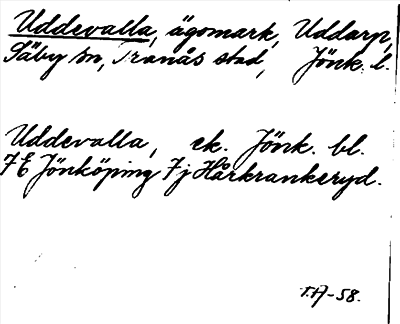 Uddevalla, ägomark, Uddarp,
Säby sn, Tranås stad, Jönk. l.
Uddevalla, ek. Jönk. bl.
7 E Jönköping 7 j Hårkrankeryd.
T.A-58.